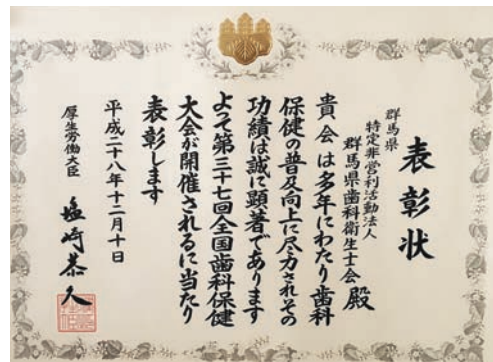 表彰状
群馬県
特定非営利活動法人
群馬県歯科衛生士会殿
貴会は多年にわたり歯科
保健の普及向上に尽力されその
功績は誠に顕著であります
よって第三十七回全国歯科保健
大会が開催されるに当たり
表彰します
平成二十八年十二月十日
厚生労働大臣 塩崎恭久